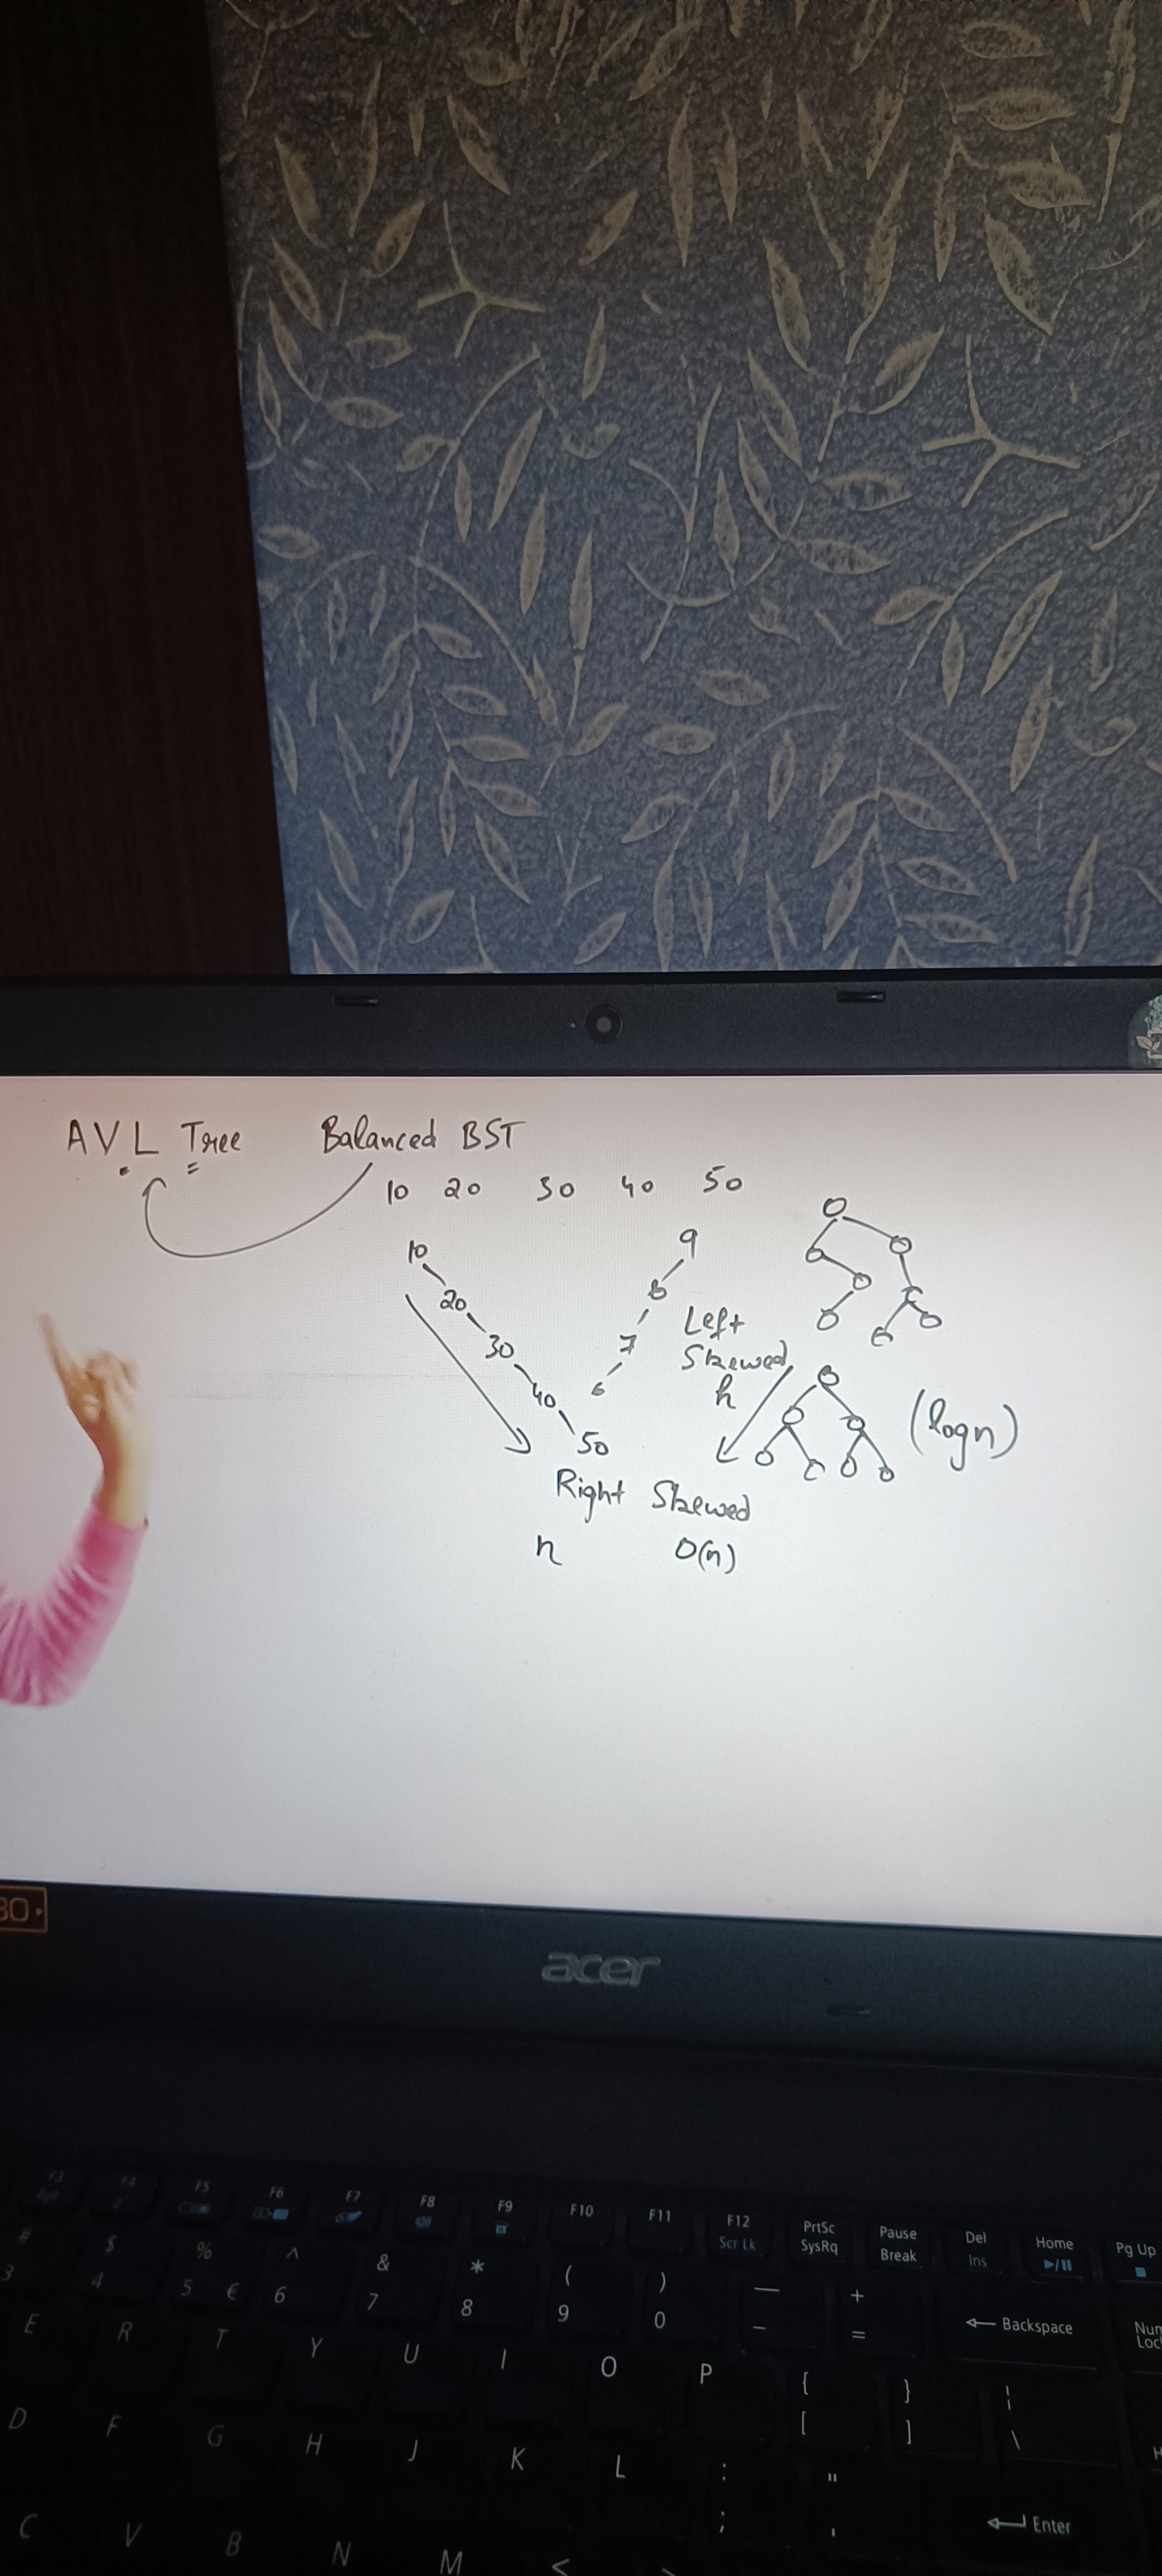 AVL Tree Balanced BST
10 20 30 40 50
10
20
30
40
50
9
8
7
6
Left
Skewed
h
(logn)
Right Skewed
n O(n)
30
acer
F3 F4 F5 F6 F7 F8 F9 F10 F11 F12 PrtSc Pause Del Home Pg Up
Scr Lk SysRq Break Ins
# $ % ^ & * ( ) — +
3 4 5 € 6 7 8 9 0 - = Backspace Num
Loc
E R T Y U I O P { } ¦
[ ] \
D F G H J K L : "
; ' Enter
C V B N M < >